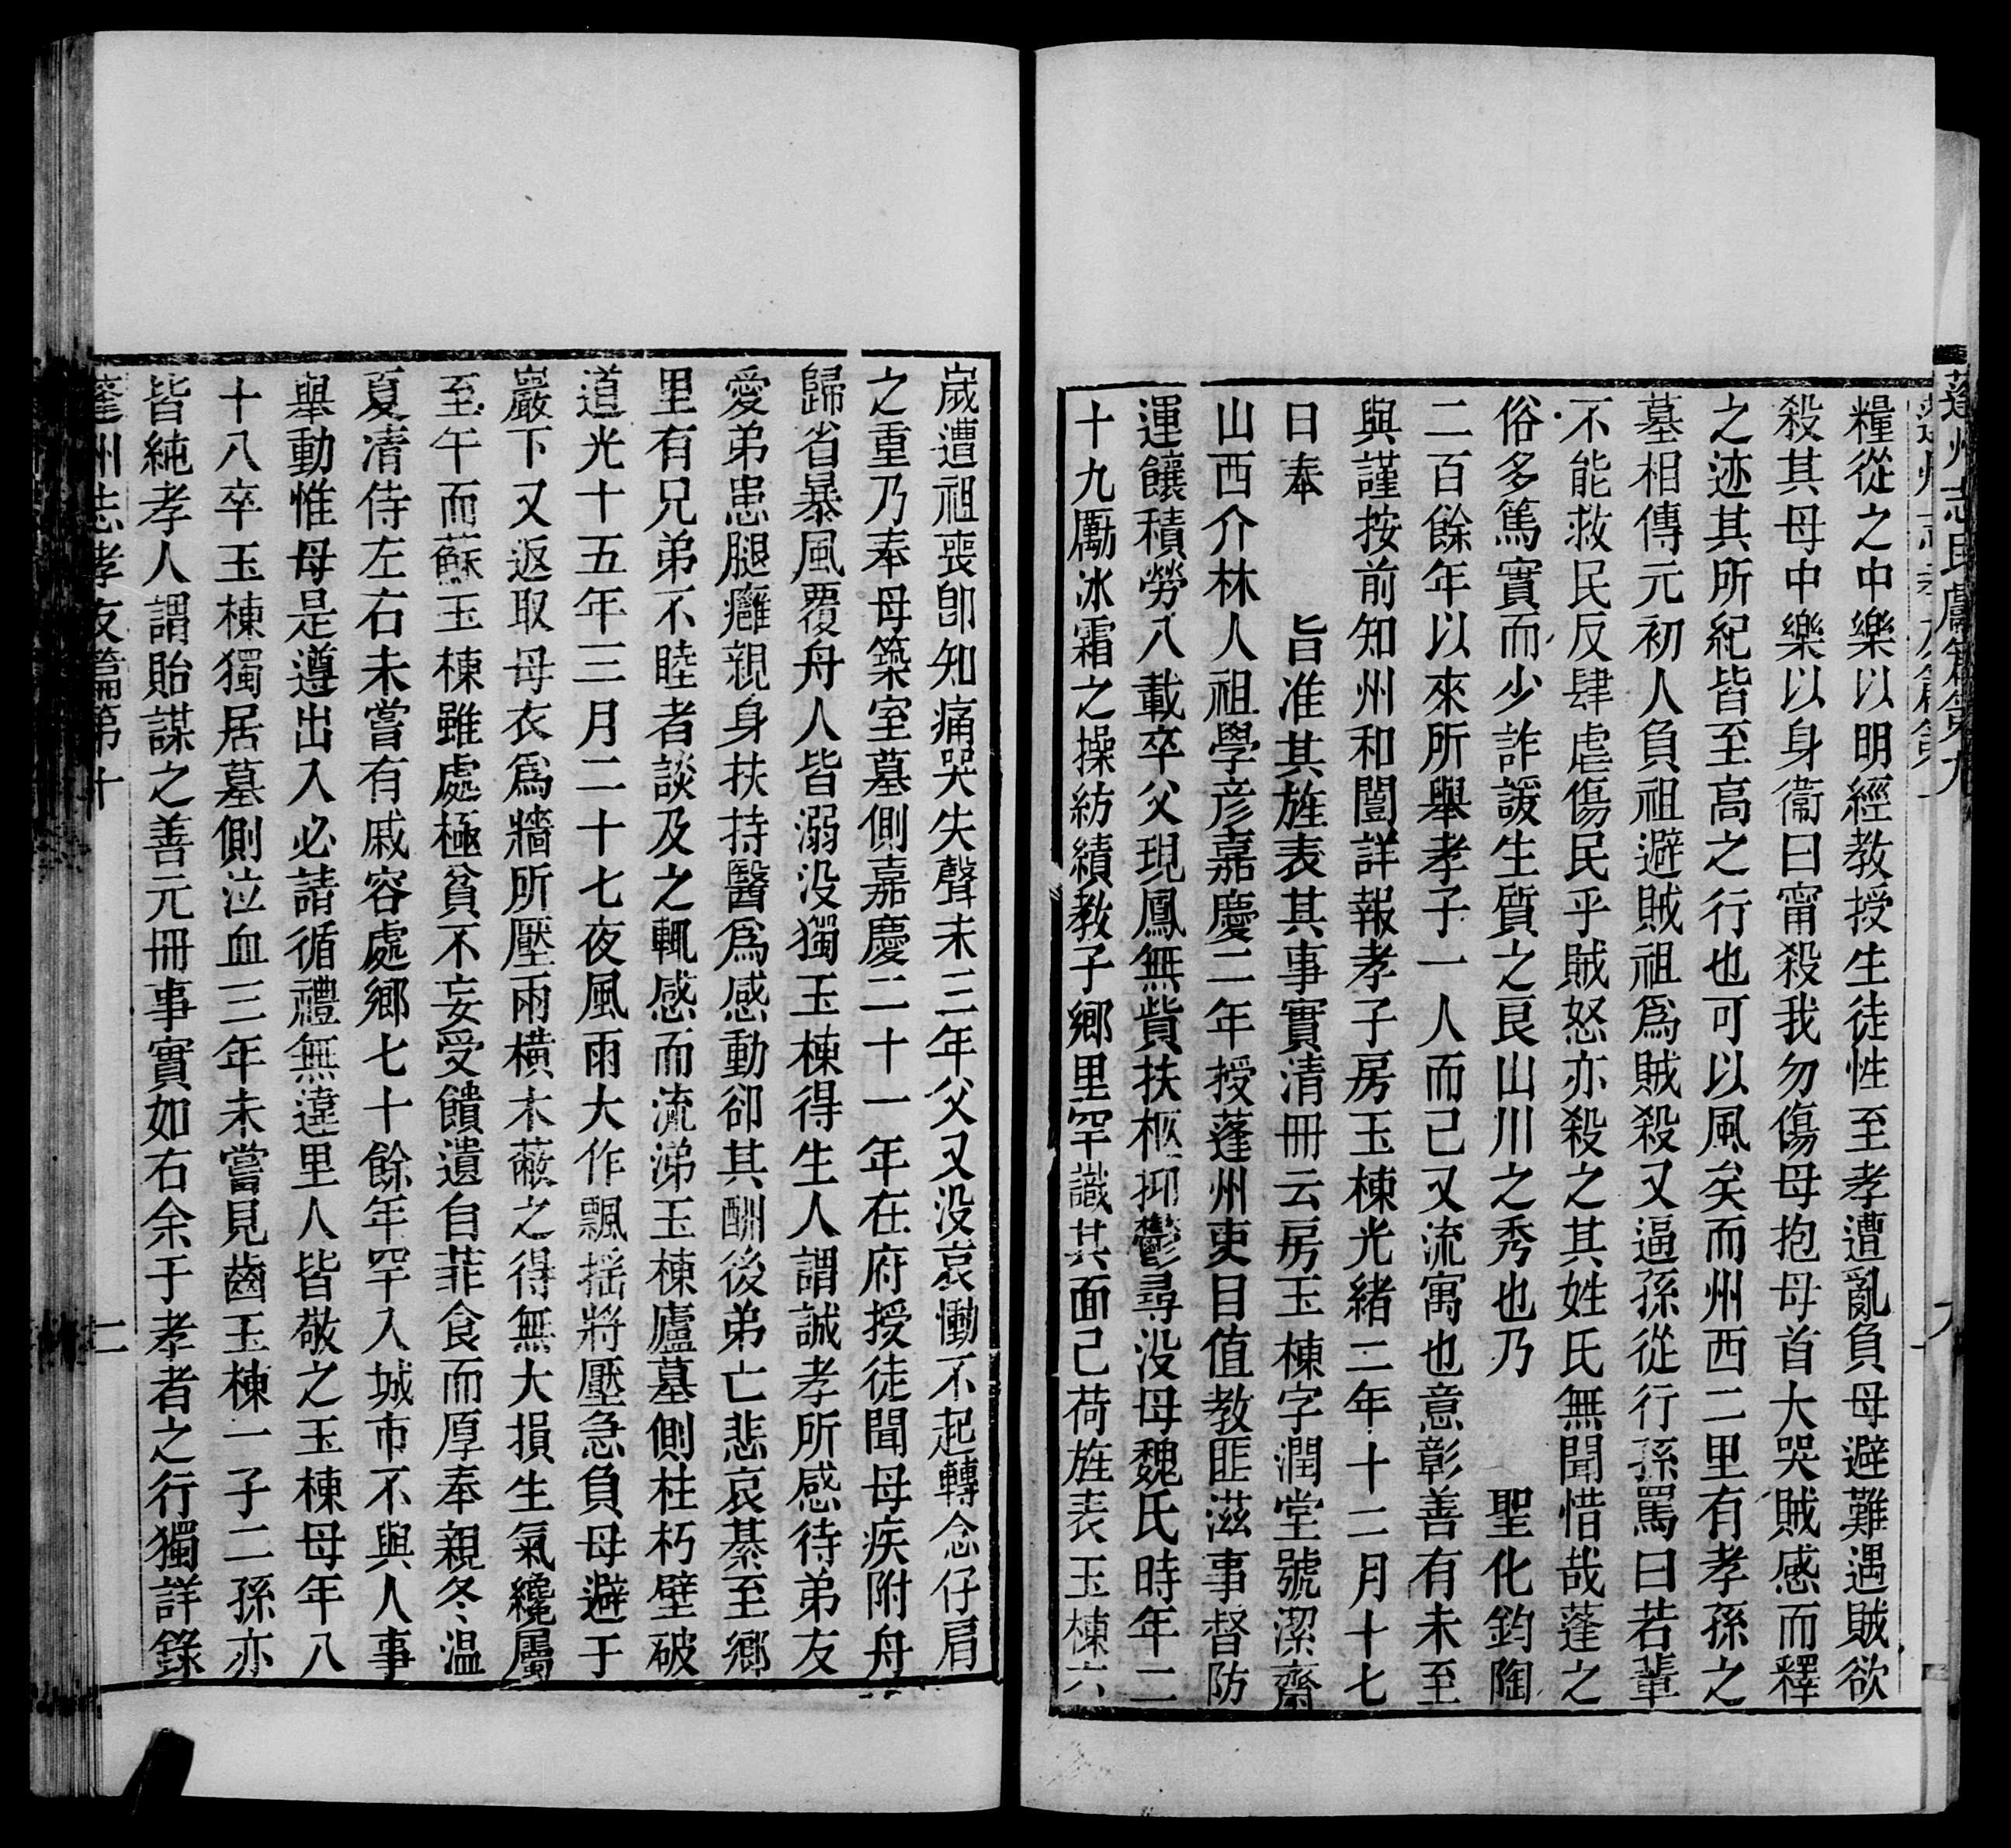 糧從之中樂以明經教授生徒性至孝遭亂負母避難遇賊欲
殺其母中樂以身衞曰甯殺我勿傷母抱母首大哭賊感而釋
之迹其所紀皆至高之行也可以風矣而州西二里有孝孫之
墓相傳元初人負祖避賊祖爲賊殺又逼孫從行孫罵曰若輩
不能救民反肆虐傷民乎賊怒亦殺之其姓氏無聞惜哉蓬之
俗多篤實而少詐諼生質之良山川之秀也乃　聖化鈞陶
二百餘年以來所舉孝子一人而已又流寓也意彰善有未至
與謹按前知州和闓詳報孝子房玉棟光緒二年十二月十七
日奉　旨准其旌表其事實清冊云房玉棟字潤堂號潔齋
山西介林人祖學彥嘉慶二年授蓬州吏目值教匪滋事督防
運饟積勞八載卒父現鳳無貲扶柩抑鬱尋没母魏氏時年二
十九勵冰霜之操紡績教子鄉里罕識其面己荷旌表玉棟六
歲遭祖喪卽知痛哭失聲未三年父又没哀慟不起轉念仔肩
之重乃奉母築室墓側嘉慶二十一年在府授徒聞母疾附舟
歸省暴風覆舟人皆溺没獨玉棟得生人謂誠孝所感待弟友
愛弟患腿癰親身扶持醫爲感動卻其酬後弟亡悲哀綦至鄉
里有兄弟不睦者談及之輒感而流涕玉棟廬墓側柱朽壁破
道光十五年三月二十七夜風雨大作飄摇將壓急負母避于
巖下又返取母衣爲牆所壓兩橫木蔽之得無大損生氣纔屬
至午而蘇玉棟雖處極貧不妄受饋遺自菲食而厚奉親冬温
夏凊侍左右未嘗有戚容處鄉七十餘年罕入城市不與人事
舉動惟母是遵出入必請循禮無違里人皆敬之玉棟母年八
十八卒玉棟獨居墓側泣血三年未嘗見齒玉棟一子二孫亦
皆純孝人謂貽謀之善元冊事實如右余于孝者之行獨詳錄
蓬州志孝友篇第十　二